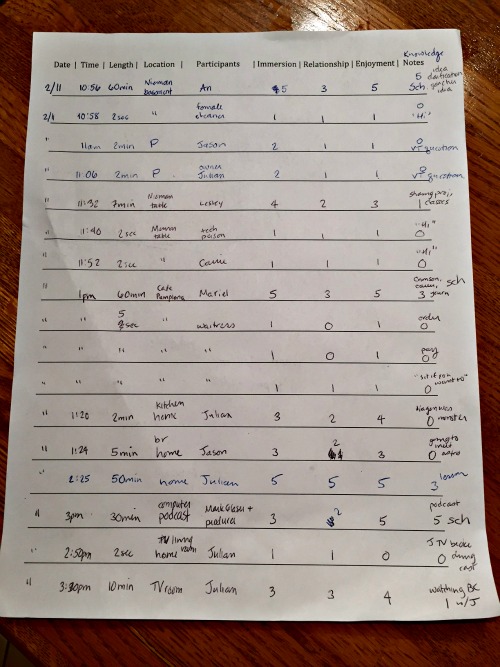 Knowledge
Date | Time | Length | Location | Participants | Immersion | Relationship | Enjoyment | Notes
2/11 10:56 60min Nieman basement An 5 3 5 5 Sch. idea clarification idea
2/1 10:58 2sec " female cleaner 1 1 1 0 "Hi"
" 11am 2min P Jason 2 1 1 0
" 11:06 2min P owner Julian 2 1 1 0
" 11:32 7min Nieman table Lesley 4 2 3 1 sharing proj, classes
" 11:40 2sec table tech person 1 1 1 0 "Hi"
" 11:52 2sec " Carrie 1 1 1 0 "Hi"
" 1pm 60min Cafe Pamplona Mariel 5 3 5 3 sch
" " 5 sec " waitress 1 0 1 0 order
" " " " " 1 0 1 0 pay
" " " " " 1 1 1 0 "sit if you want to"
" 1:20 2min kitchen home Julian 3 2 4 0 monster
" 1:24 5min br home Jason 3 2 3 0 going to meet
" 2:25 50min home Julian 5 5 5 3 lesson
" 3pm 30min computer podcast + producer 3 2 5 5 sch podcast
" 2:50pm 2sec TV living room home Julian 1 1 0 0 TV broke during
" 3:30pm 10min TV room Julian 3 3 4 1 watching w/J